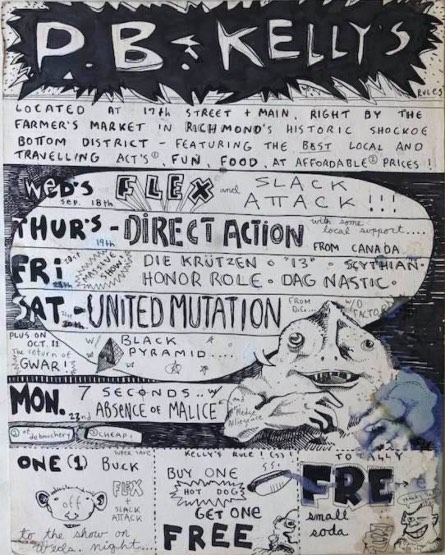 P.B. + KELLY'S
RULES
LOCATED AT 17th STREET + MAIN, RIGHT BY THE
FARMER'S MARKET IN RICHMOND'S HISTORIC SHOCKOE
BOTTOM DISTRICT - FEATURING THE BEST LOCAL AND
TRAVELLING ACT'S① FUN, FOOD, AT AFFORDABLE② PRICES!
WED'S FLEX and SLACK ATTACK!!!
SEP. 18th
THUR'S - DIRECT ACTION with some local support....
19th FROM CANADA
FRI DIE KRÜTZEN o "13" o SCYTHIAN.
HONOR ROLE · DAG NASTIC ·
SAT - UNITED MUTATION FROM D.C...
W/O
PLUS ON OCT. 11
The return of GWAR!
W/ BLACK PYRAMID....
MON. 7 SECONDS..w/
23rd ABSENCE OF MALICE
① of debauchery ② CHEAP!
ONE (1) BUCK
off
FLEX + SLACK ATTACK
to the show on Weds. night...
KELLY'S RULE!
BUY ONE
HOT DOG
GET ONE
FREE
TOTALLY
FRE
small soda